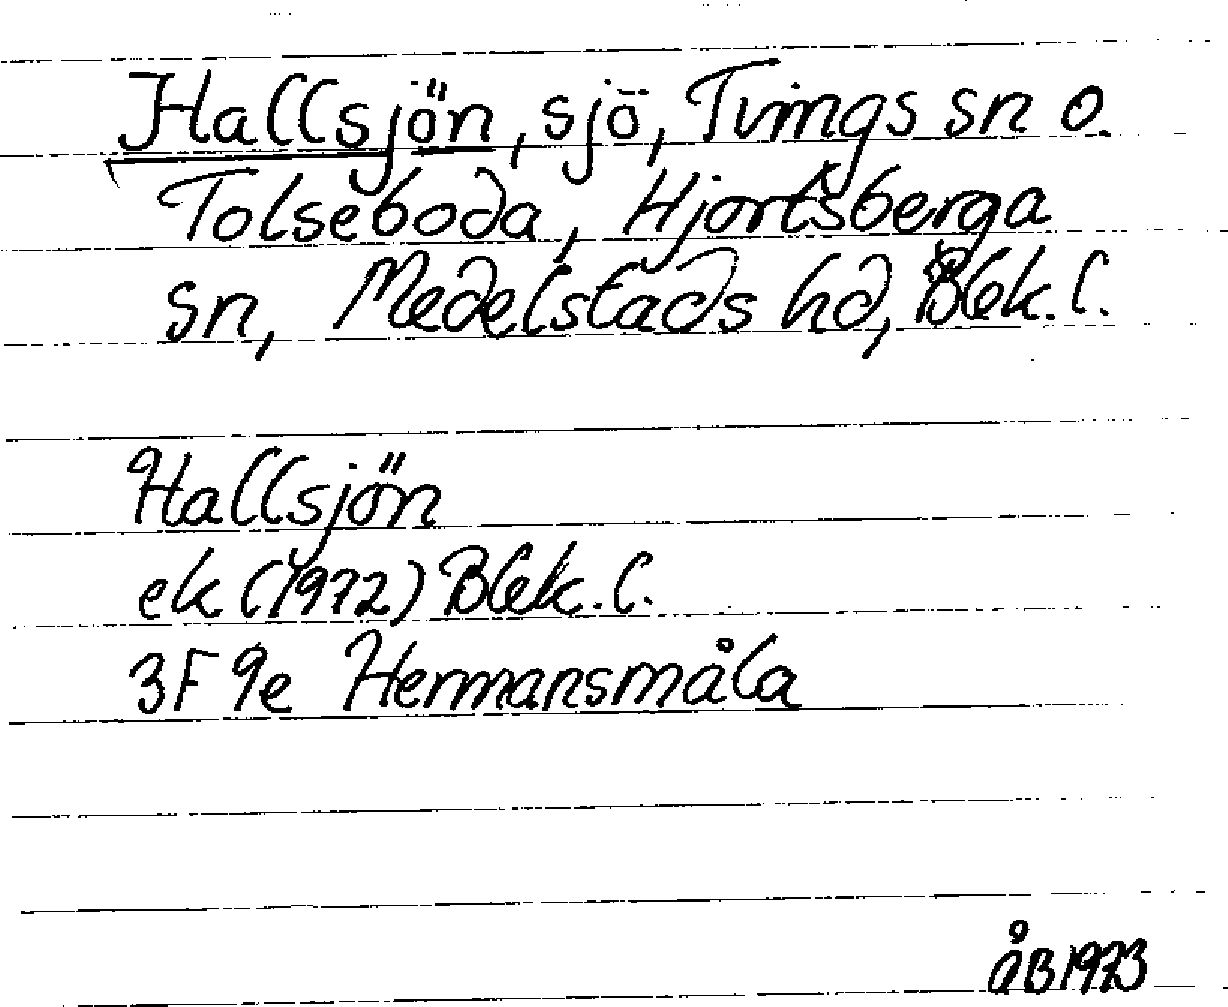 Hallsjön, sjö, Tvings sn o.
Tolseboda, Hjortsberga
sn, Medelstads hd, Blek. l.
Hallsjön
ek (1972) Blek. l.
3F 9e Hermansmåla
åB 1973